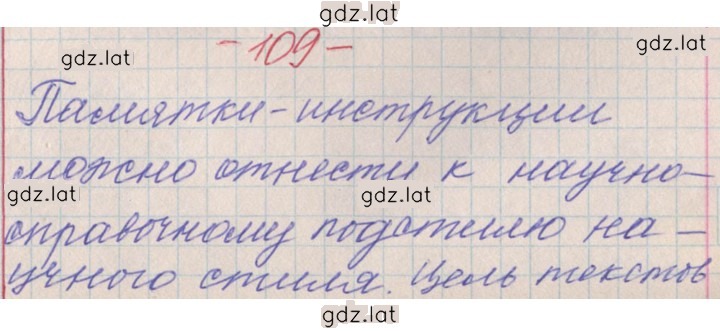 gdz.lat
- 109 -
gdz.lat
gdz.lat
Памятки-инструкции
можно отнести к научно-
gdz.lat
gdz.lat
справочному подстилю на-
учного стиля. Цель текстов
gdz.lat